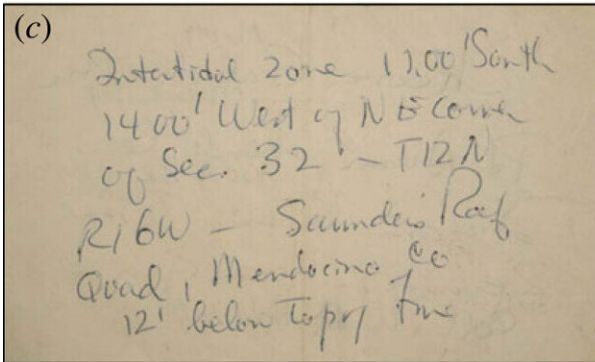 (c)
Intertidal zone 1100' South
1400' West of NE corner
of Sec. 32 - T12N
R16W - Saunders Reef
Quad, Mendocino Co
12' below top of